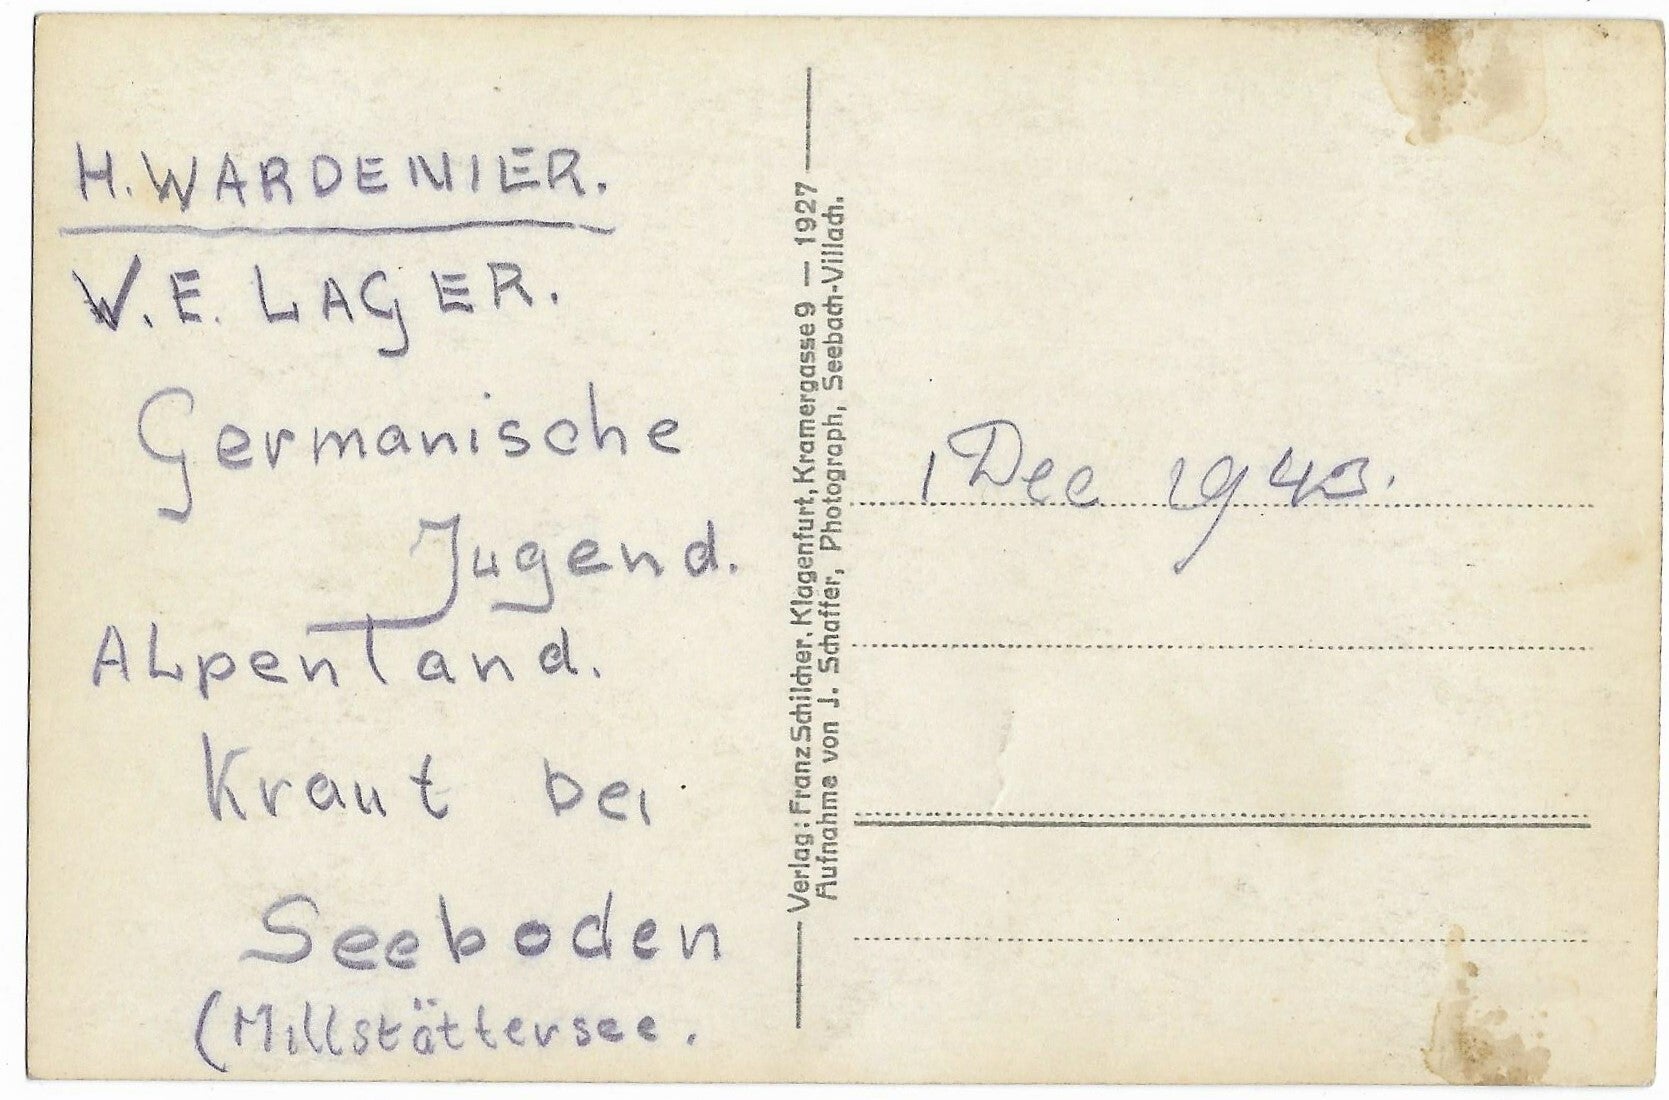 H. WARDENIER.
W.E. LAGER.
Germanische
Jugend.
ALpenland.
Kraut bei
Seeboden
(Millstättersee.
Verlag: Franz Schilcher, Klagenfurt, Kramergasse 9 — 1927
Aufnahme von J. Schaffer, Photograph, Seebach-Villach.
1 Dec 1943.